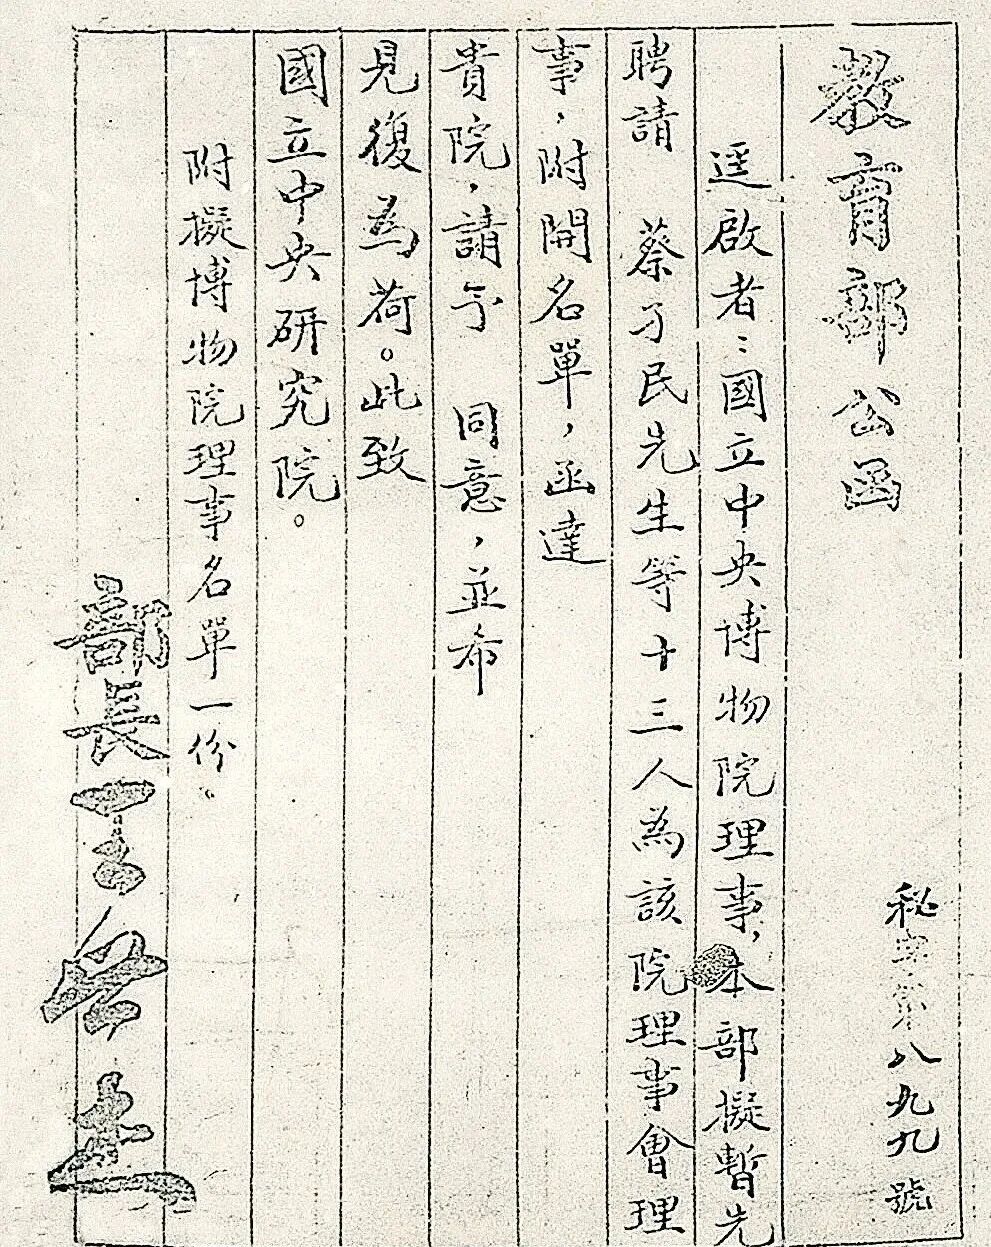 教育部公函
秘字第八九九號
逕啟者：國立中央博物院理事，本部擬暫先
聘請　蔡孑民先生等十三人為該院理事會理
事，附開名單，函達
貴院，請予　同意，並希
見復為荷。此致
國立中央研究院。
附擬博物院理事名單一份。
部長王世杰